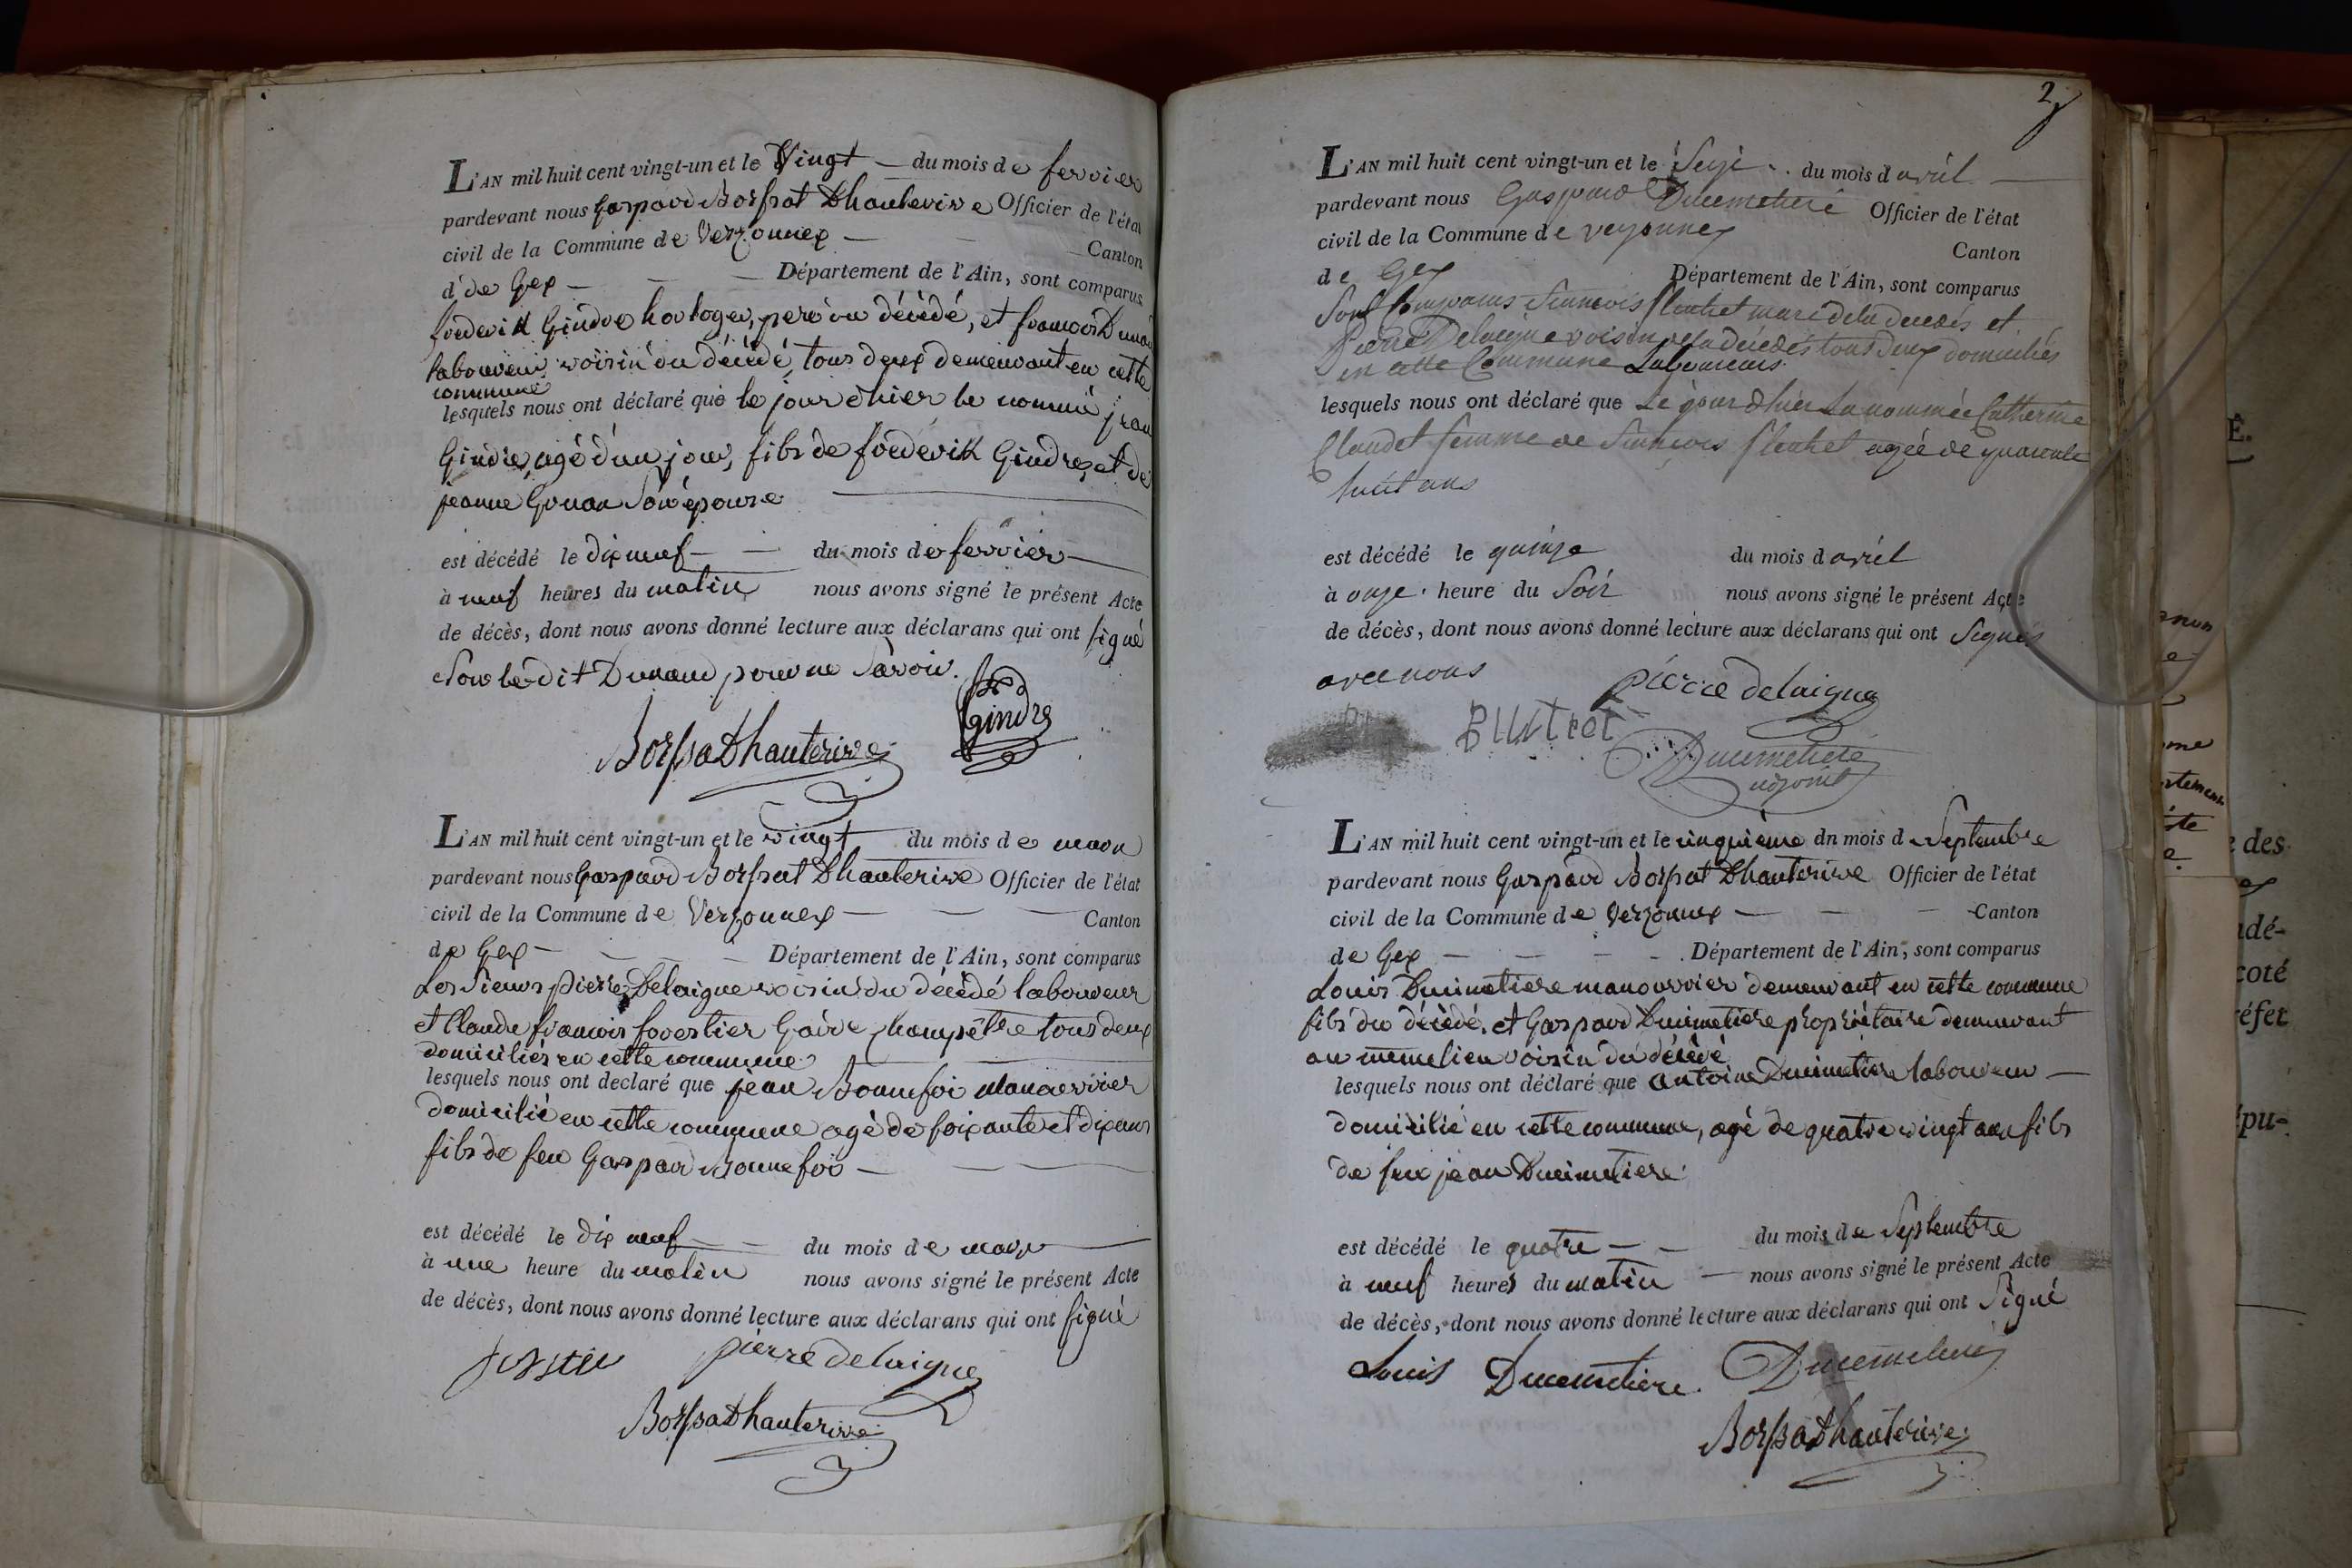 L'AN mil huit cent vingt-un et le Vingt — du mois de fervier
pardevant nous Gaspard Borssat Dhauterive Officier de l'état
civil de la Commune de Verzonnex — Canton
d de Gex — — — Département de l'Ain, sont comparus
frederik Gindre horloger, pere du décédé, et francois Dunand
laboureur, voisin du décédé, tous deux demeurant en cette
commune
lesquels nous ont déclaré que le jour d'hier le nommé jean
Gindre, agé d'un jour, fils de frederik Gindre, et de
jeanne Son épouse
est décédé le dix neuf — — du mois de fervier —
à neuf heures du matin nous avons signé le présent Acte
de décès, dont nous avons donné lecture aux déclarans qui ont signé
ledit Dunand pour ne Savoir.
Gindre
Borssat Dhauterive
L'AN mil huit cent vingt-un et le vingt du mois de mars
pardevant nous Gaspard Borssat Dhauterive Officier de l'état
civil de la Commune de Verzonnex — — — Canton
de Gex — — — Département de l'Ain, sont comparus
Les Sieurs pierre Delaigue voisin du décédé laboureur
et Claude francois forestier Garde champêtre tous deux
domiciliés en cette commune
lesquels nous ont declaré que jean Bonnefoi Manoeuvrier
domicilié en cette commune agé de soixante et dix ans
fils de feu Gaspard Bonnefoi —
est décédé le dix neuf — — du mois de mars
à une heure du matin nous avons signé le présent Acte
de décès, dont nous avons donné lecture aux déclarans qui ont signé
pierre delaigue
Borssat Dhauterive
2
L'AN mil huit cent vingt-un et le Seize du mois d avril —
pardevant nous Gaspard Ducimetiere Officier de l'état
civil de la Commune de vezonnex Canton
de Gex Département de l'Ain, sont comparus
Sont Comparus francois mari de la decedés et
Pierre Delaigue voisin de la décédés tous deux domiciliés
en cette Commune Laboureurs
lesquels nous ont déclaré que Le jour dhier La nommée Catherine
Claudet femme de francois agée de quarante
huit ans
est décédé le quinze du mois d avril
à onze heure du Soir nous avons signé le présent Acte
de décès, dont nous avons donné lecture aux déclarans qui ont Signés
avec nous pierre delaigue
Ducimetiere
adjoint
L'AN mil huit cent vingt-un et le cinquième dn mois de Septembre
pardevant nous Gaspard Borssat Dhauterive Officier de l'état
civil de la Commune de Verzonnex — — — Canton
de Gex — — — — Département de l'Ain, sont comparus
Louis Ducimetiere manouvrier demeurant en cette commune
fils du décédé, et Gaspard Ducimetiere propriétaire demeurant
au meme lieu voisin du décédé
lesquels nous ont déclaré que antoine Ducimetiere laboureur —
domicilié en cette commune, agé de quatre vingt ans fils
de feu jean Ducimetiere
est décédé le quatre — — du mois de Septembre
à neuf heures du matin — nous avons signé le présent Acte
de décès, dont nous avons donné lecture aux déclarans qui ont Signé
Louis Ducimetiere Ducimetiere
Borssat Dhauterive